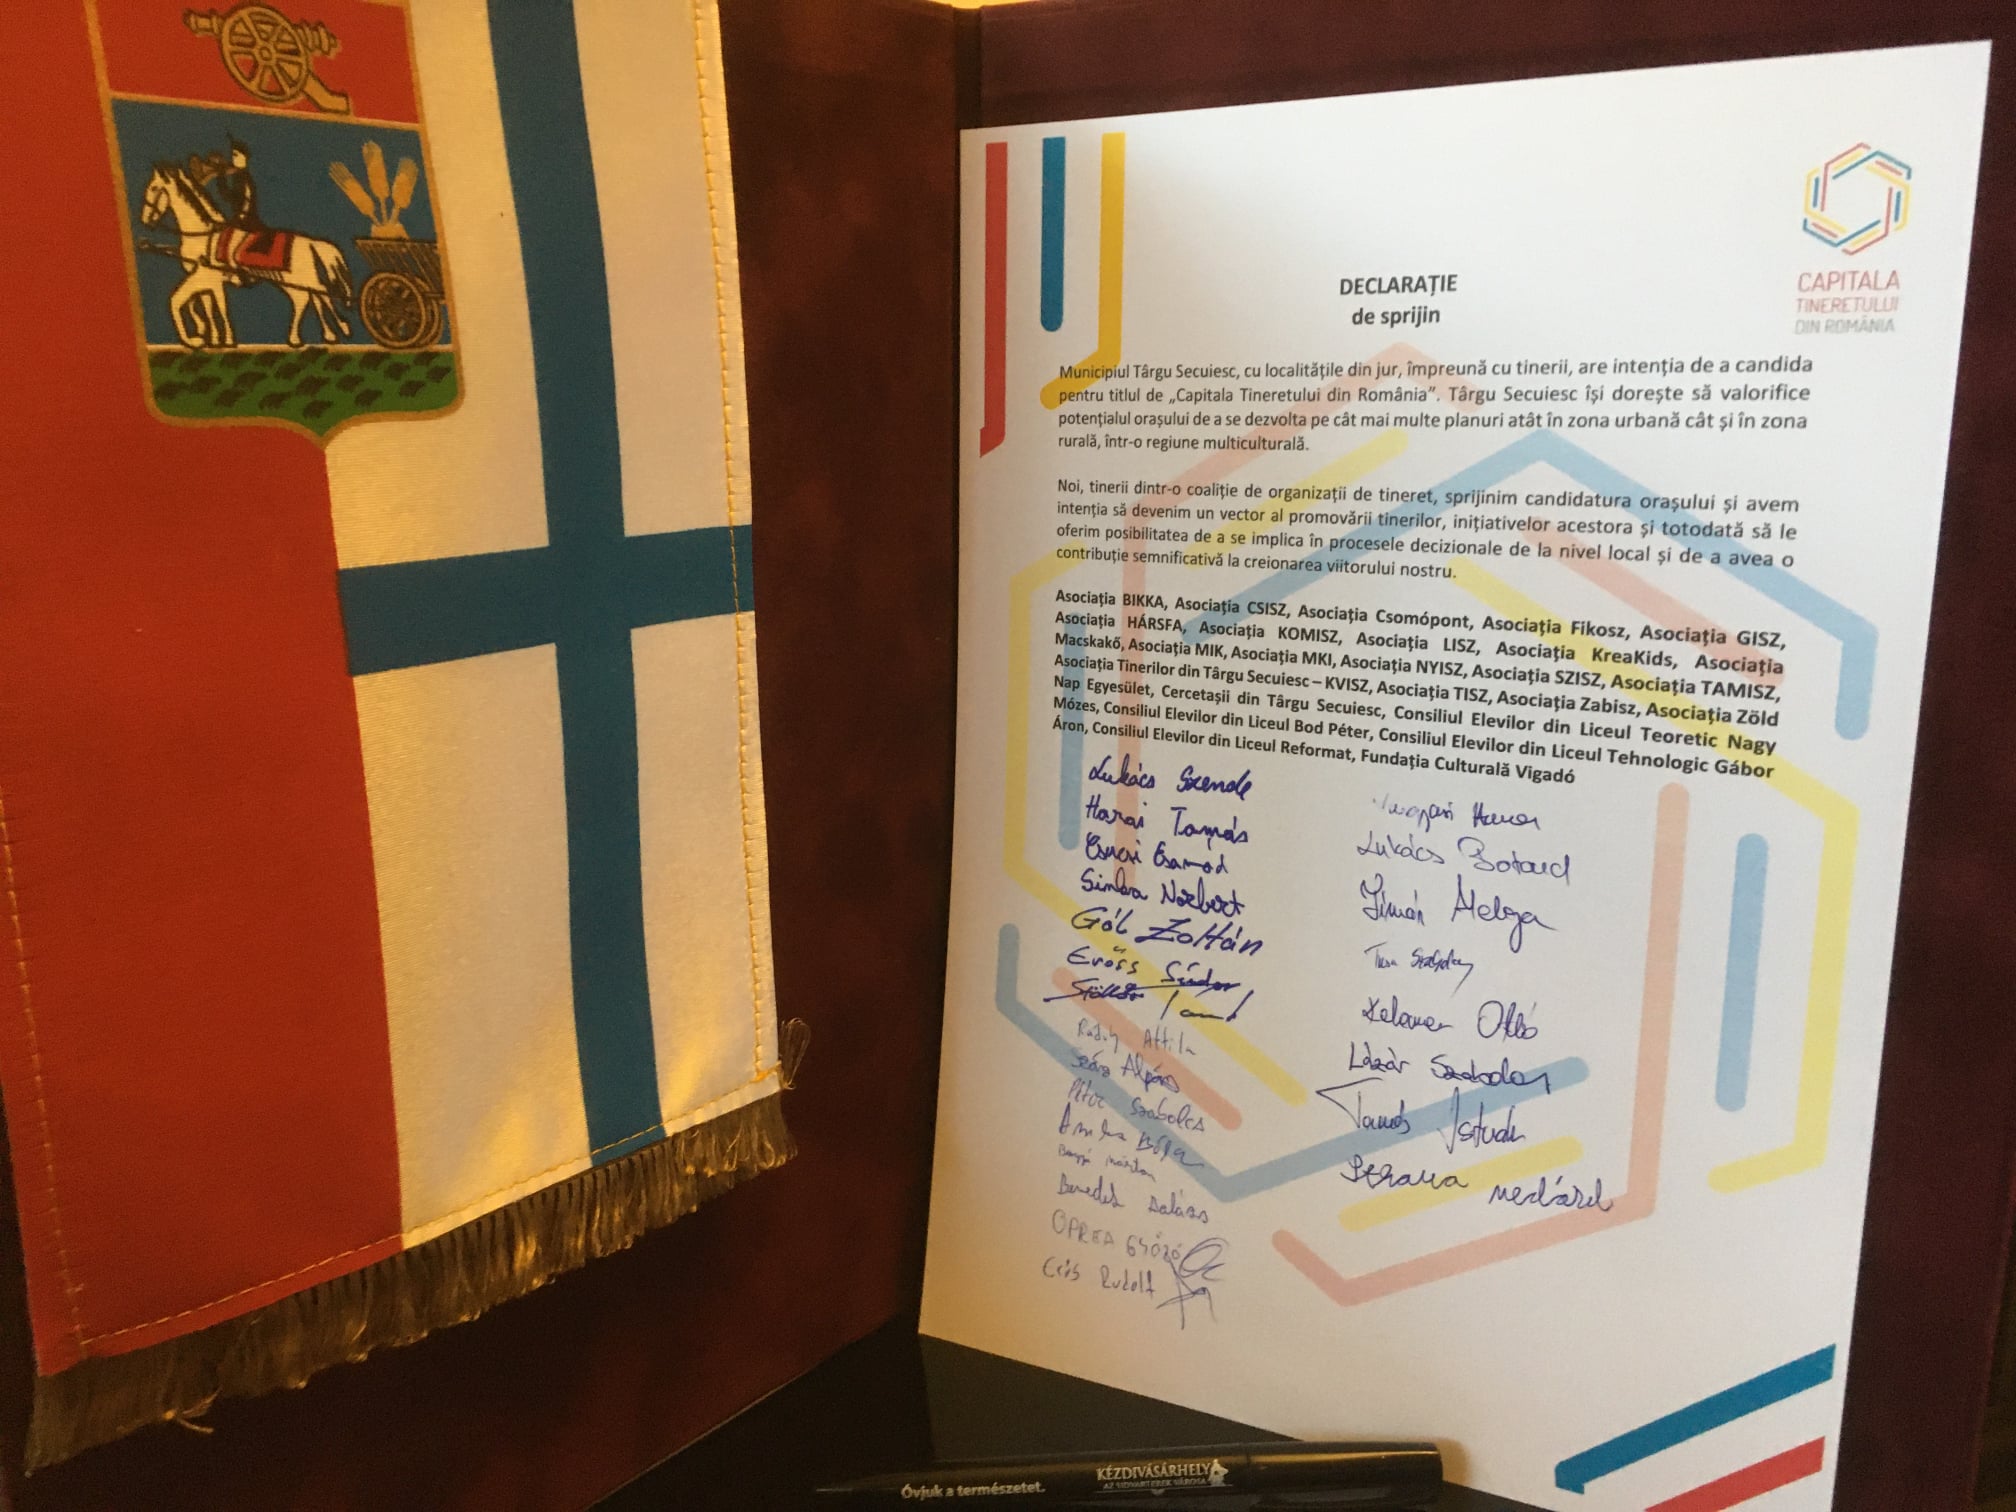 CAPITALA
TINERETULUI
DIN ROMÂNIA
DECLARAȚIE
de sprijin
Municipiul Târgu Secuiesc, cu localitățile din jur, împreună cu tinerii, are intenția de a candida
pentru titlul de „Capitala Tineretului din România". Târgu Secuiesc își dorește să valorifice
potențialul orașului de a se dezvolta pe cât mai multe planuri atât în zona urbană cât și în zona
rurală, într-o regiune multiculturală.
Noi, tinerii dintr-o coaliție de organizații de tineret, sprijinim candidatura orașului și avem
intenția să devenim un vector al promovării tinerilor, inițiativelor acestora și totodată să le
oferim posibilitatea de a se implica în procesele decizionale de la nivel local și de a avea o
contribuție semnificativă la creionarea viitorului nostru.
Asociația BIKKA, Asociația CSISZ, Asociația Csomópont, Asociația Fikosz, Asociația GISZ,
Asociația HÁRSFA, Asociația KOMISZ, Asociația LISZ, Asociația KreaKids, Asociația
Macskakő, Asociația MIK, Asociația MKI, Asociația NYISZ, Asociația SZISZ, Asociația TAMISZ,
Asociația Tinerilor din Târgu Secuiesc – KVISZ, Asociația TISZ, Asociația Zabisz, Asociația Zöld
Nap Egyesület, Cercetașii din Târgu Secuiesc, Consiliul Elevilor din Liceul Teoretic Nagy
Mózes, Consiliul Elevilor din Liceul Bod Péter, Consiliul Elevilor din Liceul Tehnologic Gábor
Áron, Consiliul Elevilor din Liceul Reformat, Fundația Culturală Vigadó
Lukács Szende
Harai Tamás
Simka Norbert
Gól Zoltán
Erőss Sándor
Attila
Száraz Alpár
Péter Szabolcs
Béla
Márton
Benedek Balázs
OPREA GYŐZŐ
Erős Rudolf
Hunor
Lukács Botond
Helga
Kelemen Ottó
Lázár Szabolcs
Tamás István
Medárd
Óvjuk a természetet.
KÉZDIVÁSÁRHELY
AZ UDVARTEREK VÁROSA